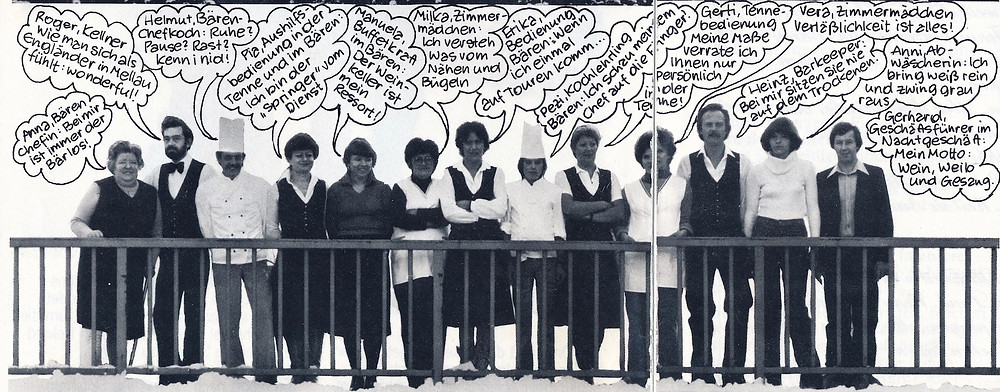 Roger, Kellner
Wie man sich als
Engländer in Mellau
fühlt: wonderful!
Anna, Bären
chefin: Bei mir
ist immer der
Bär los!
Helmut, Bären-
Chefkoch: Ruhe?
Pause? Rast?
Kenn i nid!
Pia, Aushilfs-
bedienung in der
Tenne und im Bären:
Ich bin der
"Springer" vom
Dienst!
Manuela,
Buffetkraft
im Bären:
Der Wein-
keller ist
mein
Ressort!
Milka, Zimmer-
mädchen:
Ich versteh
was vom
Nähen und
Bügeln
Erika,
Bedienung
Bären: Wenn
ich einmal
auf Touren komm...
Pezi, Kochlehrling
Bären: Ich schau mein
Chef auf die Finger!
Gerti, Tenne-
bedienung
Meine Maße
verrate ich
Ihnen nur
persönlich
Heinz, Barkeeper:
Bei mir sitzen sie nie
auf dem Trockenen!
Vera, Zimmermädchen
Verläßlichkeit ist alles!
Anni, Ab-
wäscherin: Ich
bring weiß rein
und zwing grau
raus
Gerhard,
Geschäsführer im
Nachtgeschäft:
Mein Motto:
Wein, Weib
und Gesang.